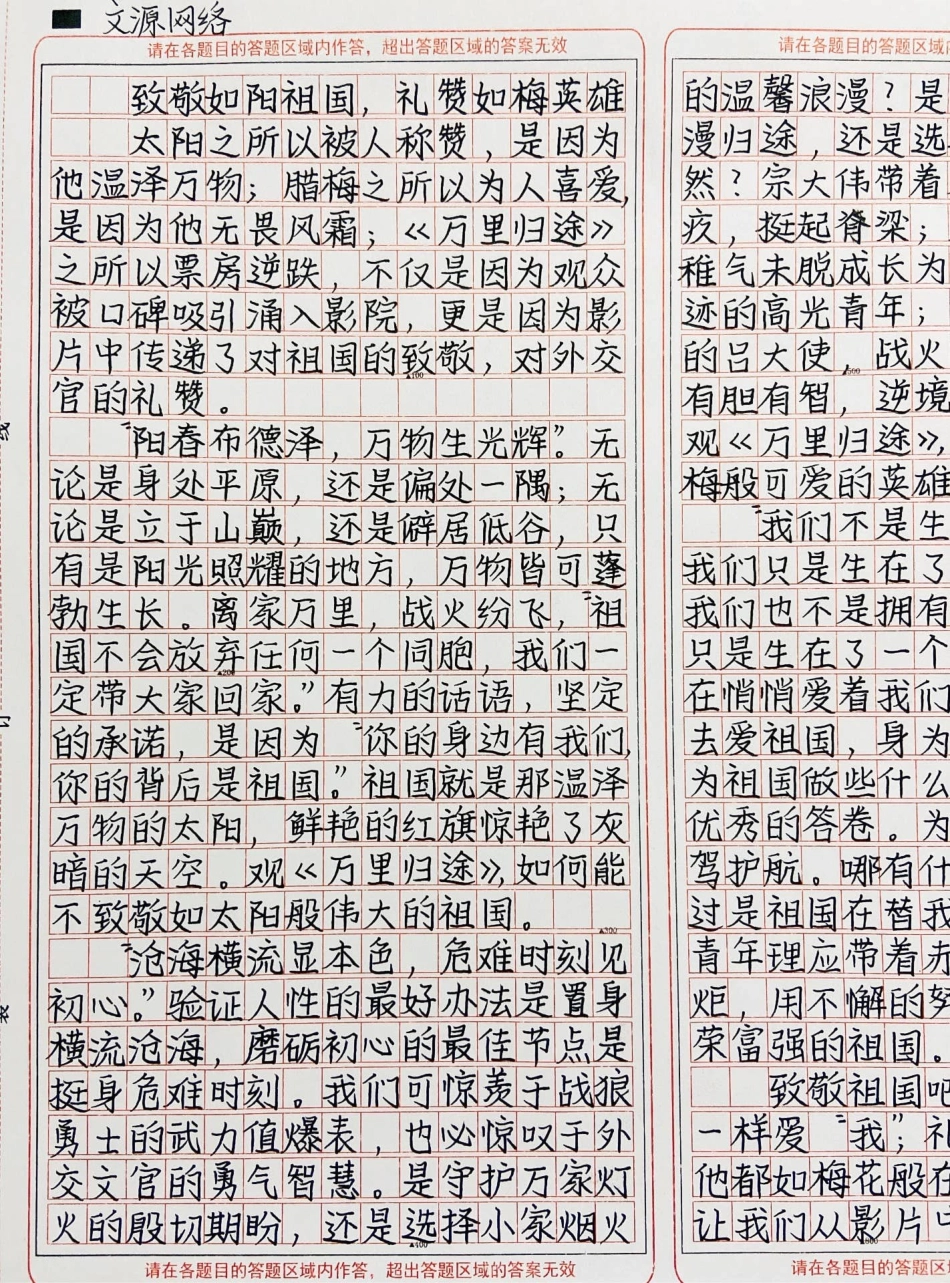 文源网络
请在各题目的答题区域内作答，超出答题区域的答案无效
致敬如阳祖国，礼赞如梅英雄
太阳之所以被人称赞，是因为
他温泽万物；腊梅之所以为人喜爱，
是因为他无畏风霜；《万里归途》
之所以票房逆跌，不仅是因为观众
被口碑吸引涌入影院，更是因为影
片中传递了对祖国的致敬，对外交
▲100
官的礼赞。
“阳春布德泽，万物生光辉”。无
论是身处平原，还是偏处一隅；无
论是立于山巅，还是僻居低谷，只
有是阳光照耀的地方，万物皆可蓬
勃生长。离家万里，战火纷飞，“祖
国不会放弃任何一个同胞，我们一
▲200
定带大家回家。”有力的话语，坚定
的承诺，是因为“你的身边有我们，
你的背后是祖国。”祖国就是那温泽
万物的太阳，鲜艳的红旗惊艳了灰
暗的天空。观《万里归途》，如何能
不致敬如太阳般伟大的祖国。
▲300
“沧海横流显本色，危难时刻见
初心。”验证人性的最好办法是置身
横流沧海，磨砺初心的最佳节点是
挺身危难时刻。我们可惊羡于战狼
勇士的武力值爆表，也必惊叹于外
交文官的勇气智慧。是守护万家灯
火的殷切期盼，还是选择小家烟火
▲400
请在各题目的答题区域内作答，超出答题区域的答案无效
请在各题目的答题区域内
的温馨浪漫？是
漫归途，还是选
然？宗大伟带着
疚，挺起脊梁；
稚气未脱成长为
迹的高光青年；
的吕大使，战火
▲500
有胆有智，逆境
观《万里归途》，
梅般可爱的英雄
“我们不是生
我们只是生在了
我们也不是拥有
只是生在了一个
在悄悄爱着我们
去爱祖国，身为
为祖国做些什么
优秀的答卷。为
驾护航。哪有什
过是祖国在替我
青年理应带着赤
炬，用不懈的努
荣富强的祖国。
致敬祖国吧
一样爱“我”；礼
他都如梅花般在
让我们从影片中
▲800
请在各题目的答题区
线
订
装